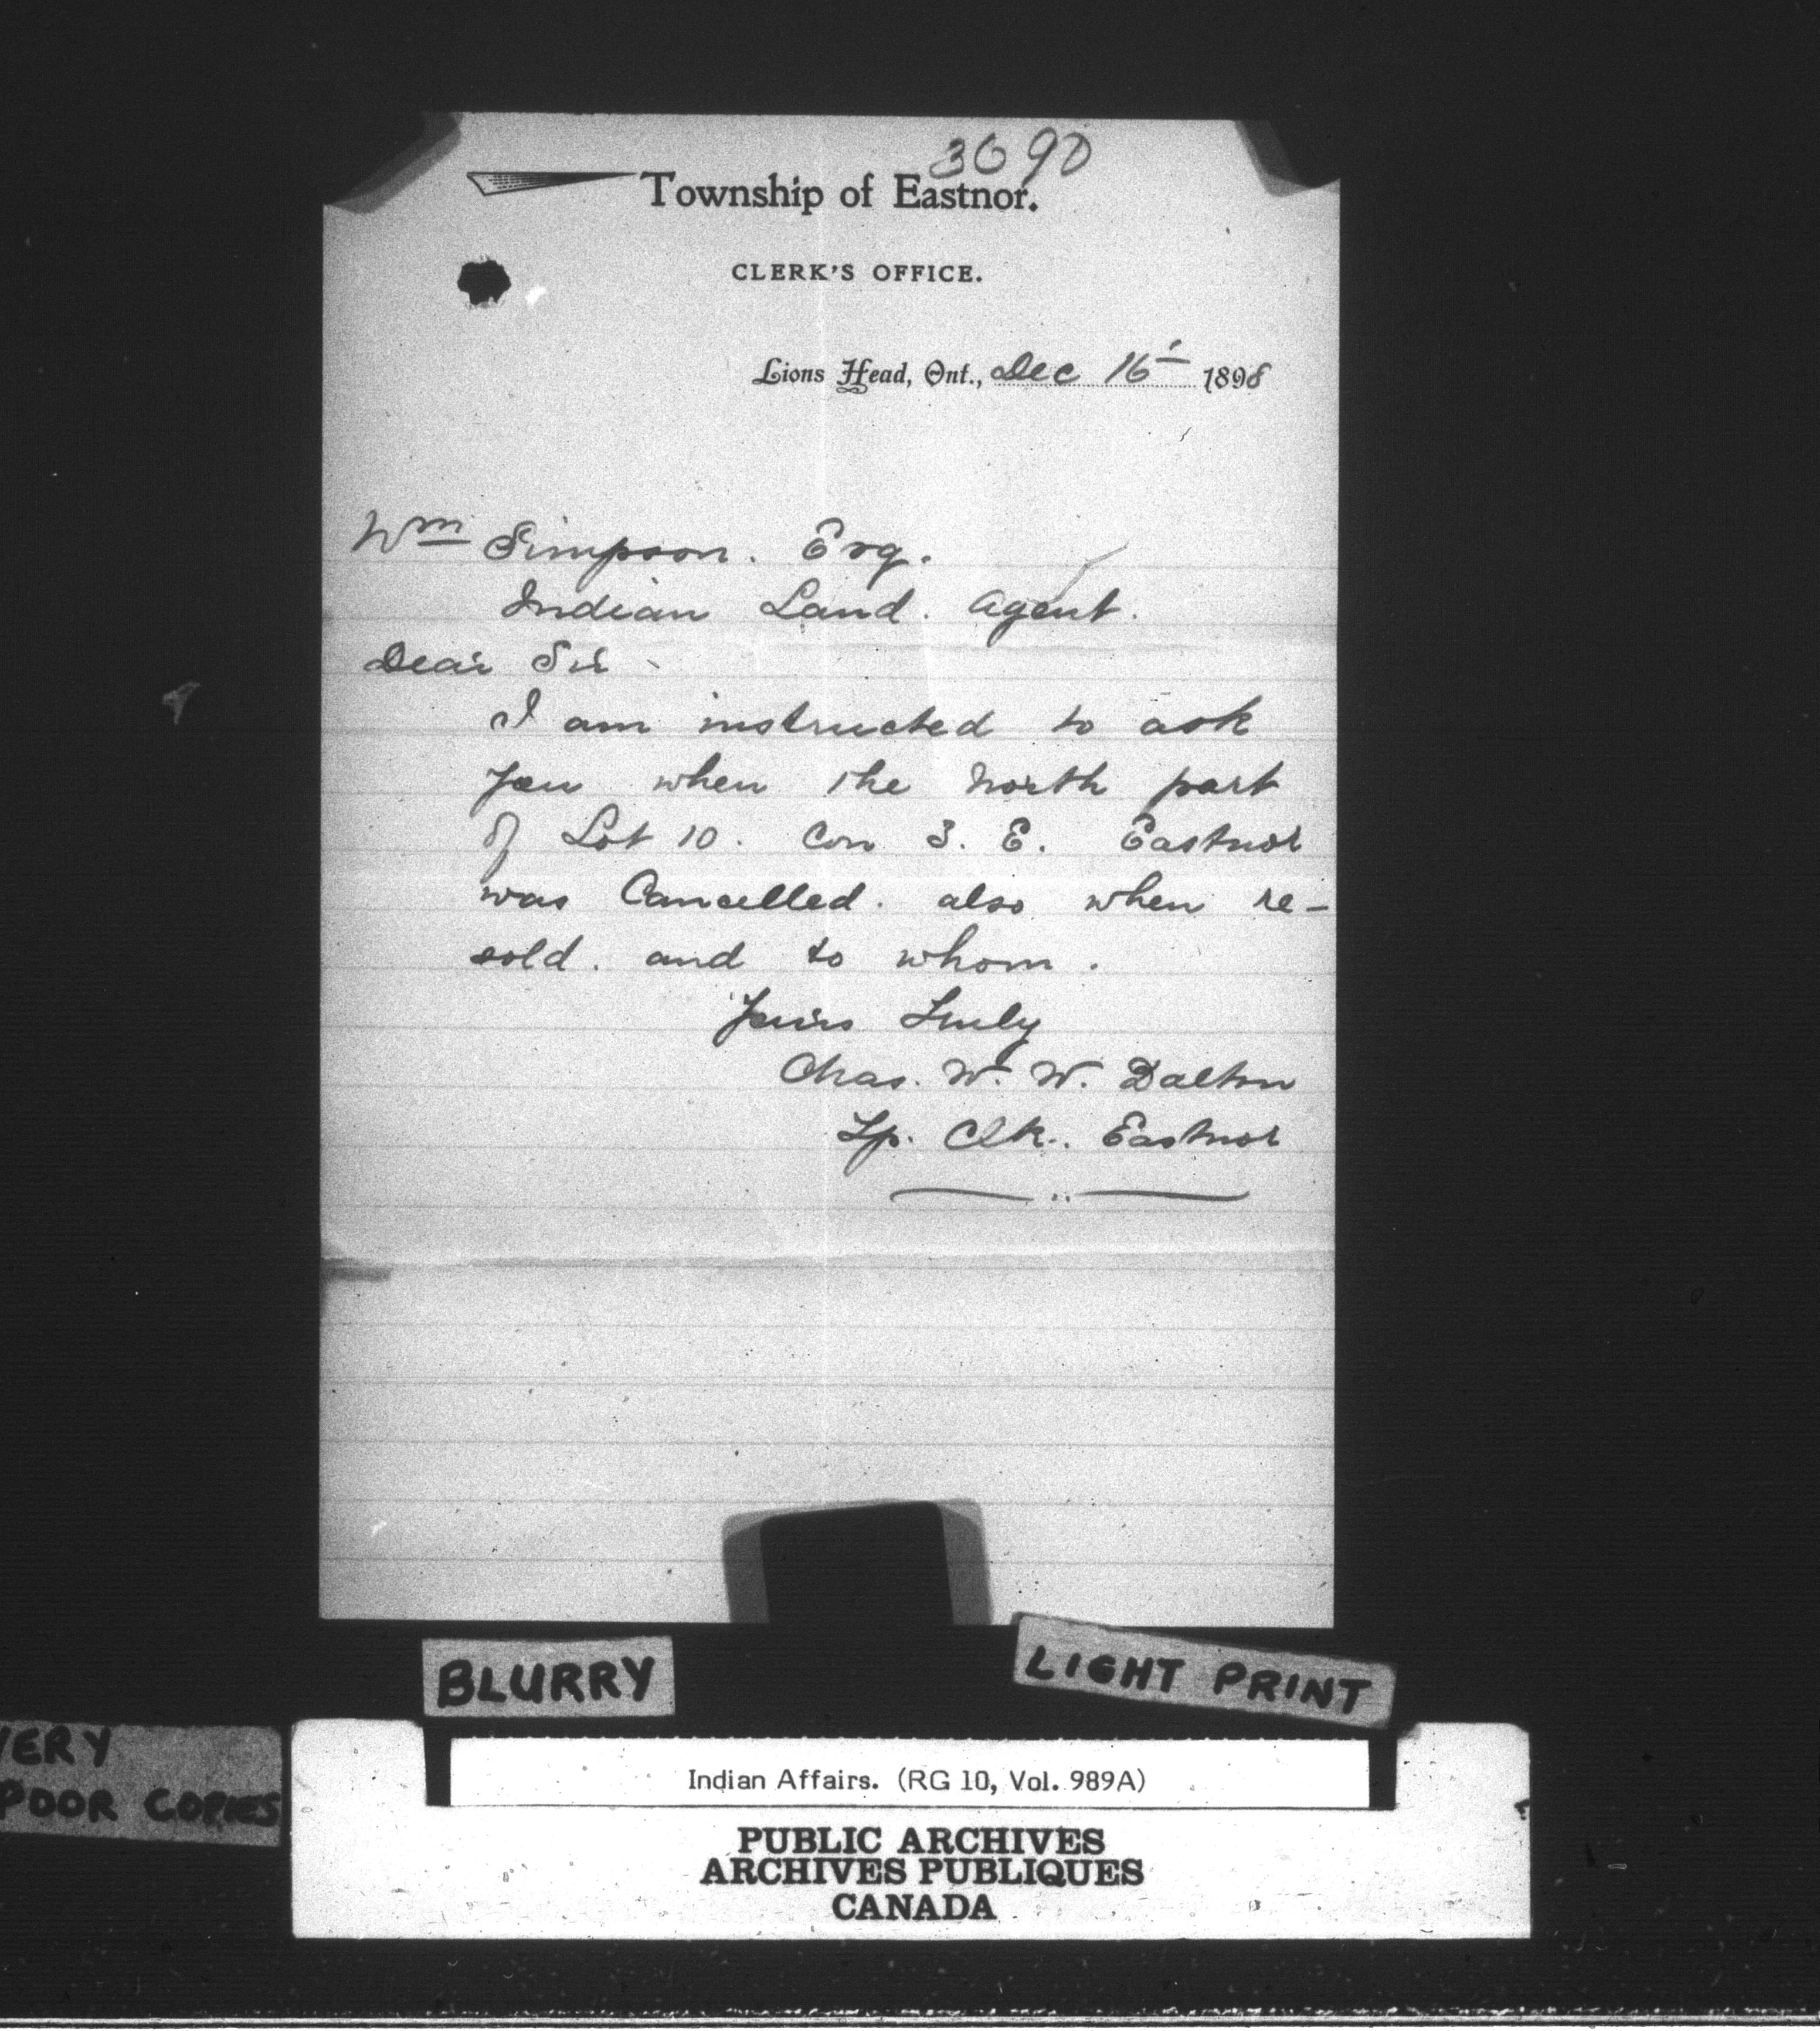 3690
Township of Eastnor.
CLERK'S OFFICE.
Lions Head, Ont., Dec 16th 1898
Wm Simpson. Esq.
Indian Land. Agent.
Dear Sir
I am instructed to ask
you when the North part
of Lot 10. Con 3. E. Eastnor
was Cancelled. also when re-
sold. and to whom.
Yours Truly
Chas. W. W. Dalton
Tp. Clk. Eastnor
BLURRY
LIGHT PRINT
VERY
POOR COPIES
Indian Affairs. (RG 10, Vol. 989A)
PUBLIC ARCHIVES
ARCHIVES PUBLIQUES
CANADA